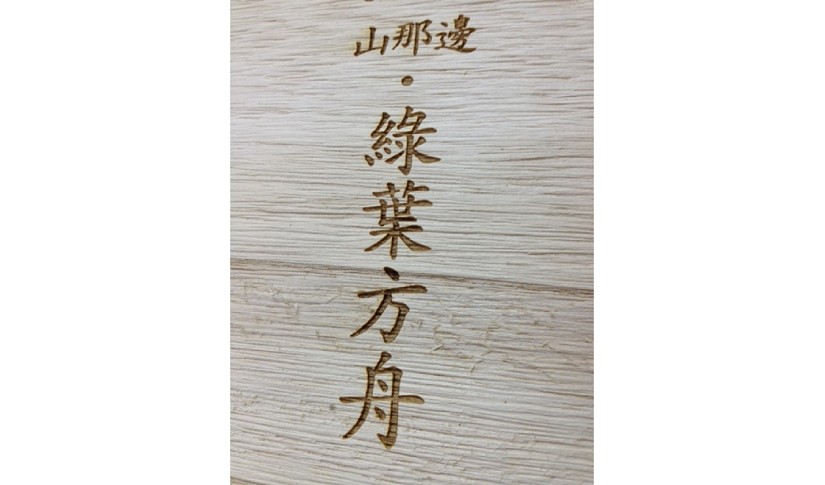 山那邊
·
綠葉方舟